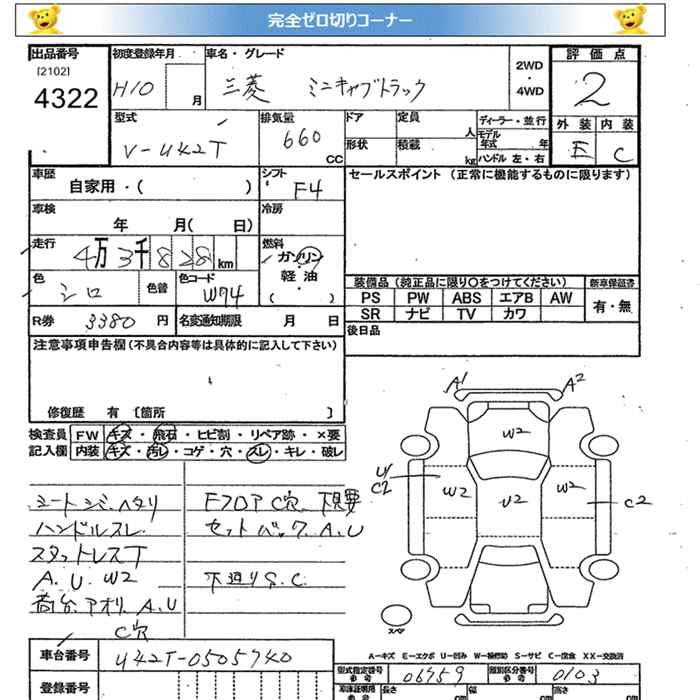 完全ゼロ切りコーナー
出品番号 初度登録年月 車名・グレード 2WD・4WD 評価点
[2102]
4322 H10 月 三菱 ミニキャブトラック 2
型式 排気量 ドア 定員 人 ディーラー・並行 外装 内装
V-U42T 660 CC 形状 積載 kg モデル年式 年 ハンドル 左・右 E C
車歴 シフト セールスポイント (正常に機能するものに限ります)
自家用・( ) F4
車検 年 月( 日) 冷房
走行 4万3千828km 燃料 ガソリン・軽油 ( )
色 シロ 色替 色コード W74
装備品 (純正品に限り〇をつけてください) 新車保証書
PS PW ABS エアB AW 有・無
SR ナビ TV カワ
R券 3380 円 名変通知期限 月 日 後日品
注意事項申告欄 (不具合内容等は具体的に記入して下さい)
修復歴 有 [箇所 ]
検査員 FW キズ・飛石・ヒビ割・リペア跡・×要
記入欄 内装 キズ・汚レ・コゲ・穴・スレ・キレ・破レ
シートシミ、ヘタリ
ハンドルスレ
スタットレスT
A.U W2
荷台、アオリ A.U
C穴
FフロアC穴 下見要
セットバック A.U
下廻りS.C
A1 A2
W2
U1
C2 W2 U2 W2 C2
スペア
A-キズ E-エクボ U-凹み W-補修跡 S-サビ C-腐食 XX-交換済
車台番号 U42T-0505740 型式指定番号 参考 06959 類別区分番号 参考 0103
登録番号 長さ cm 幅 cm 高さ cm